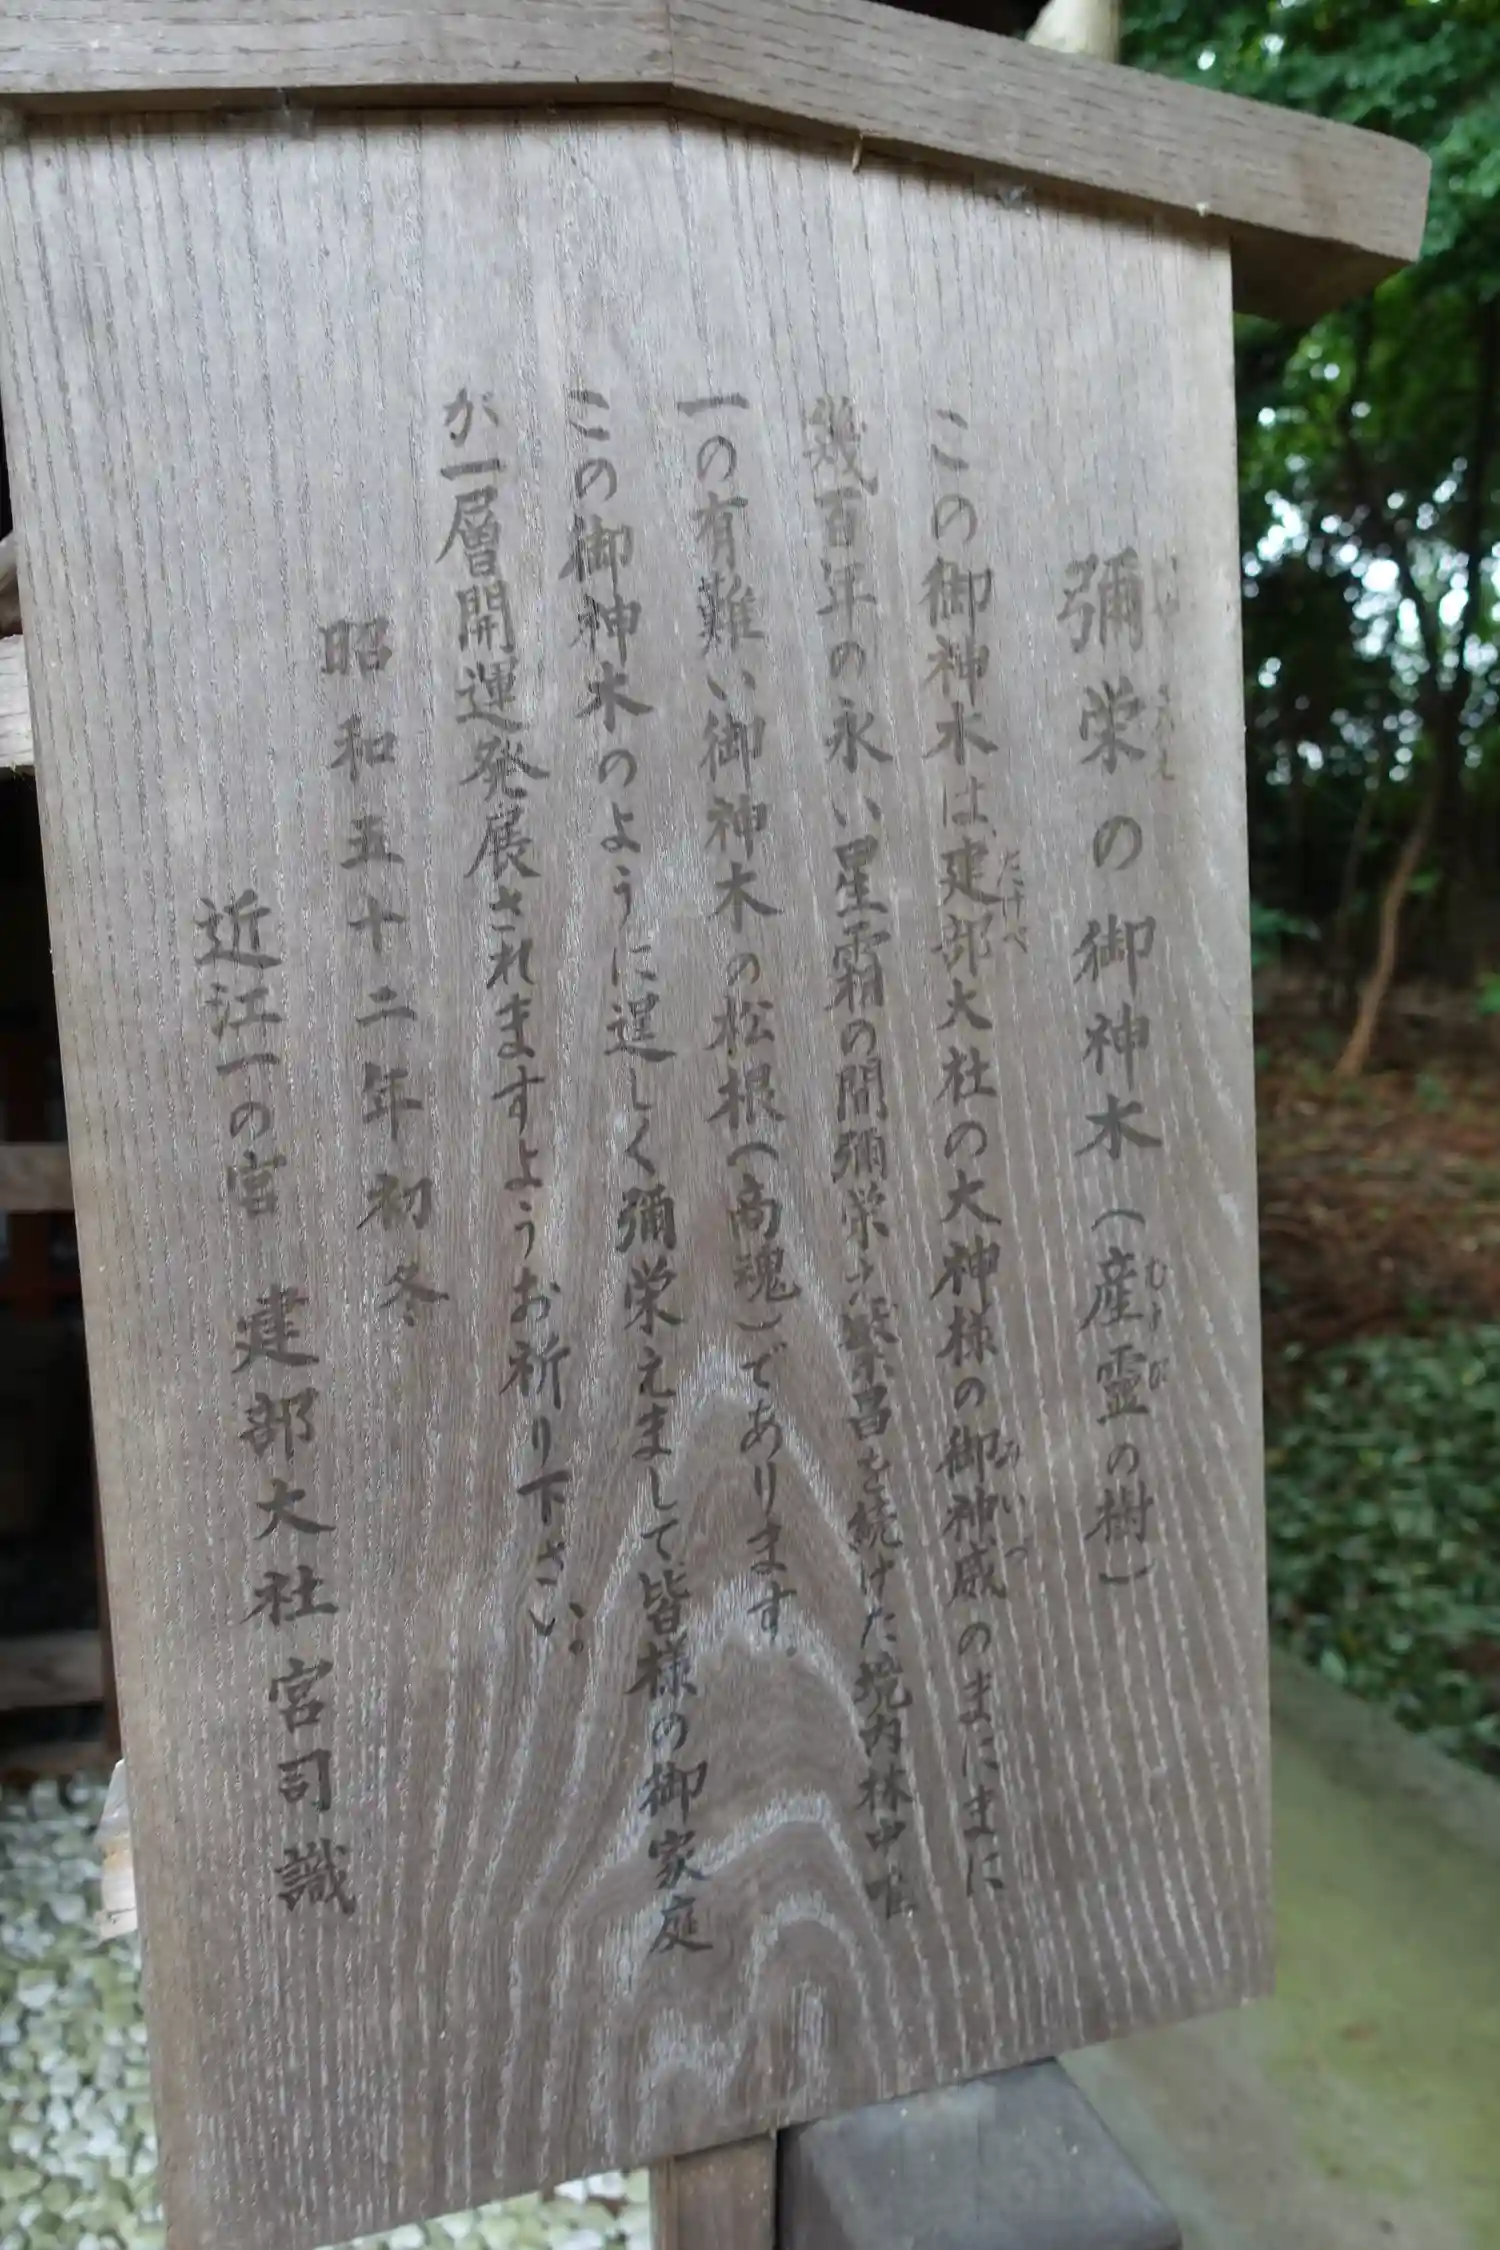 彌栄の御神木（産霊の樹）
いやさかえ
むすび
この御神木は建部大社の大神様の御神威のまにまに
たけべ
みいつ
幾百年の永い星霜の間彌栄え繁昌を続けた境内林中唯
一の有難い御神木の松根（商魂）であります。
この御神木のように逞しく彌栄えまして皆様の御家庭
が一層開運発展されますようお祈り下さい。
昭和五十二年初冬
近江一の宮 建部大社宮司識